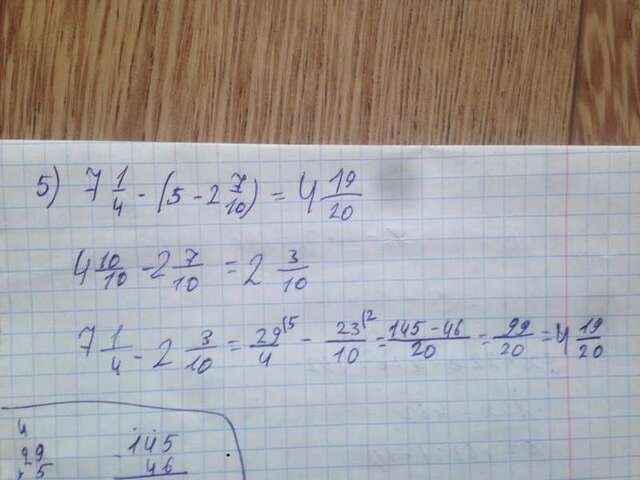 5) 7 1/4 - (5 - 2 7/10) = 4 19/20
4 10/10 - 2 7/10 = 2 3/10
7 1/4 - 2 3/10 = 29/4 |5 - 23/10 |2 = 145 - 46/20 = 99/20 = 4 19/20
4
29
5
145
46